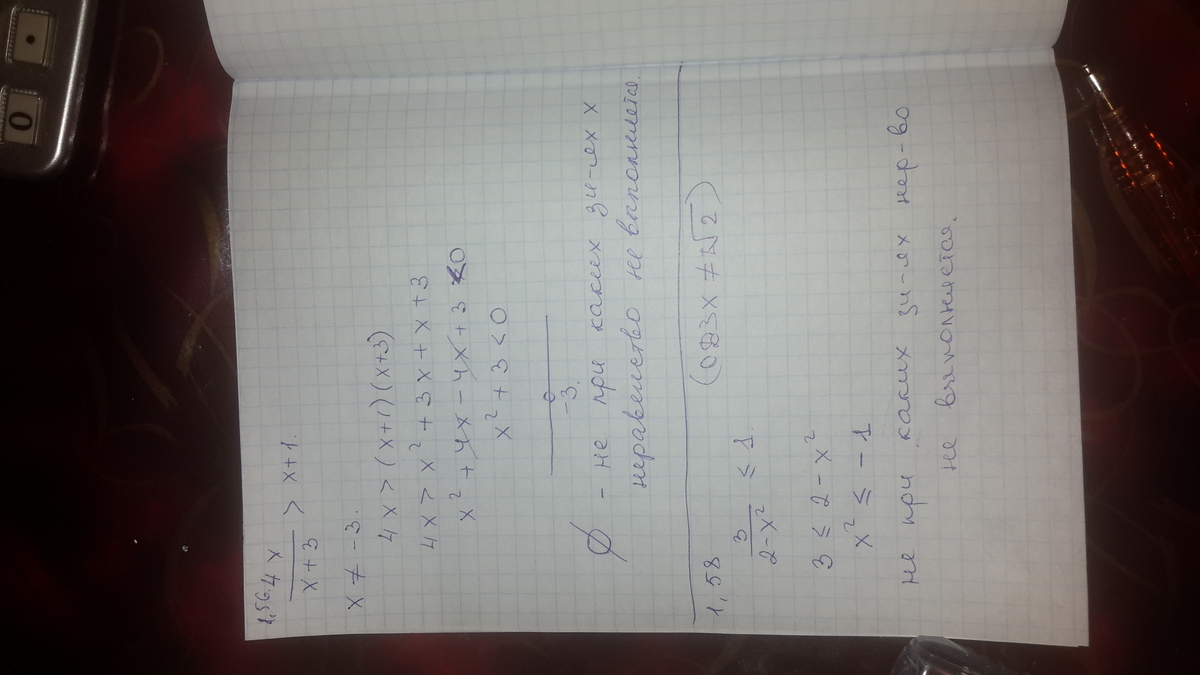 1,56. 4x / x+3 > x+1.
x ≠ -3.
4x > (x+1)(x+3)
4x > x² + 3x + x + 3
x² + 4x - 4x + 3 < 0
x² + 3 < 0
-3.
∅ - не при каких зн-ях x
неравенство не выполняется.
1,58
3 / 2-x² ≤ 1. (ОДЗ x ≠ ±√2)
3 ≤ 2 - x²
x² ≤ -1
не при каких зн-ях нер-во
не выполняется.
0